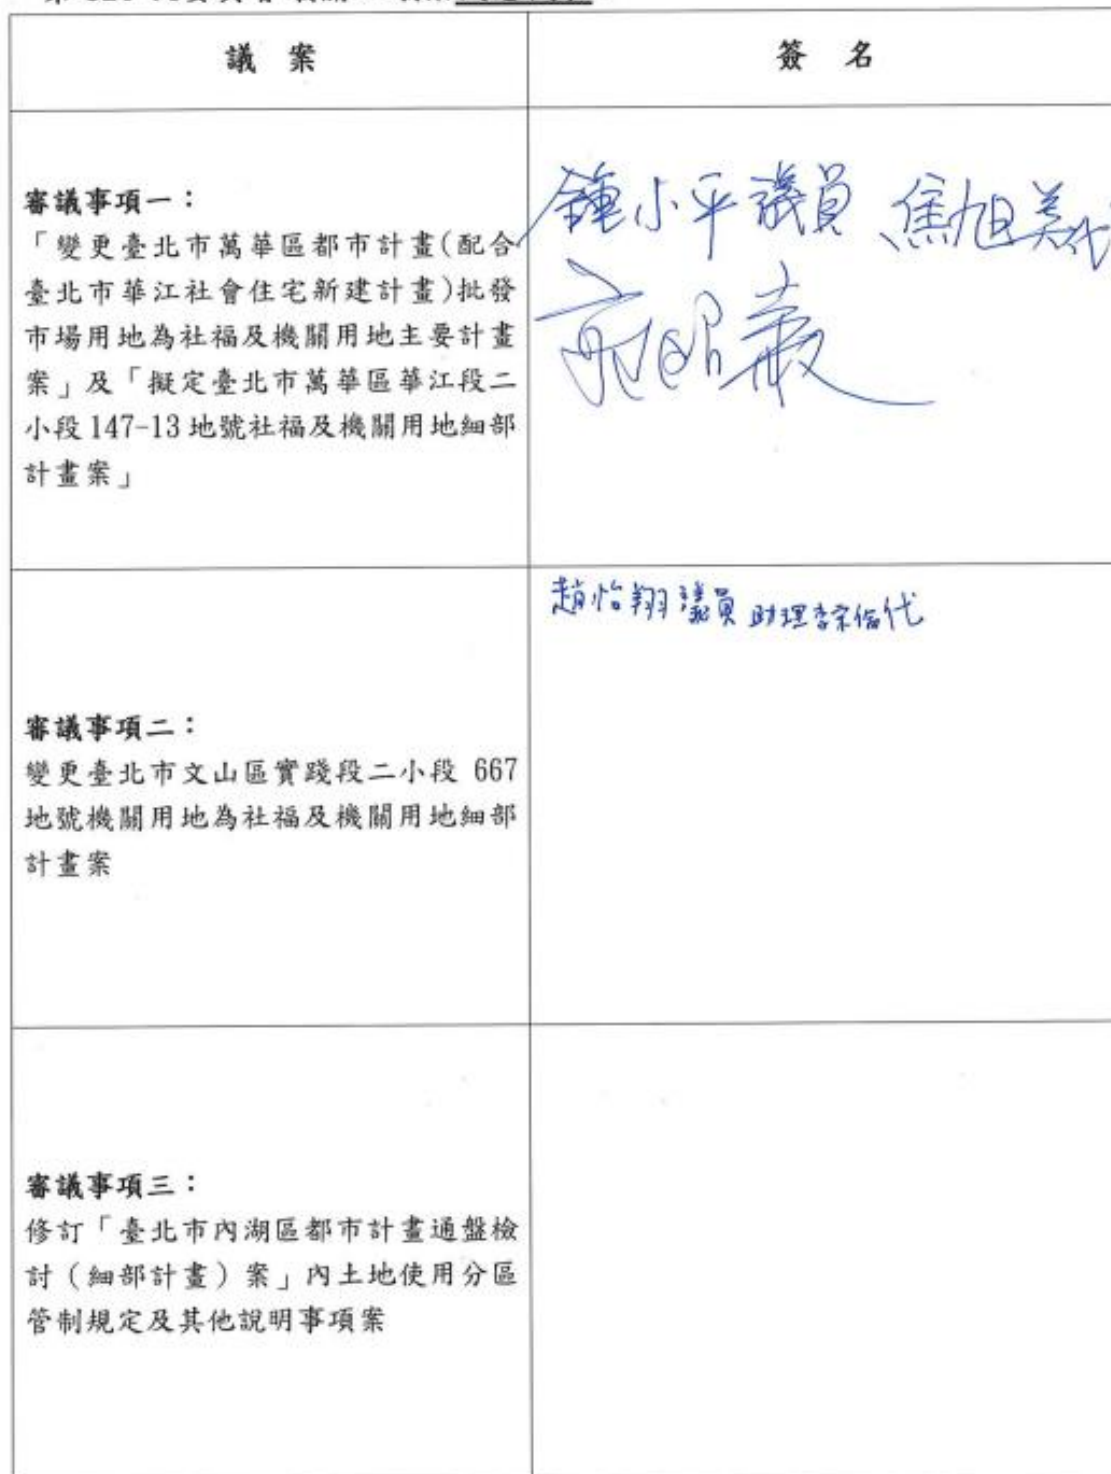 議 案
簽 名
審議事項一：
「變更臺北市萬華區都市計畫(配合
臺北市華江社會住宅新建計畫)批發
市場用地為社福及機關用地主要計畫
案」及「擬定臺北市萬華區華江段二
小段147-13地號社福及機關用地細部
計畫案」
鍾小平議員、焦旭美代
審議事項二：
變更臺北市文山區實踐段二小段 667
地號機關用地為社福及機關用地細部
計畫案
趙怡翔議員 助理李宗倫代
審議事項三：
修訂「臺北市內湖區都市計畫通盤檢
討（細部計畫）案」內土地使用分區
管制規定及其他說明事項案